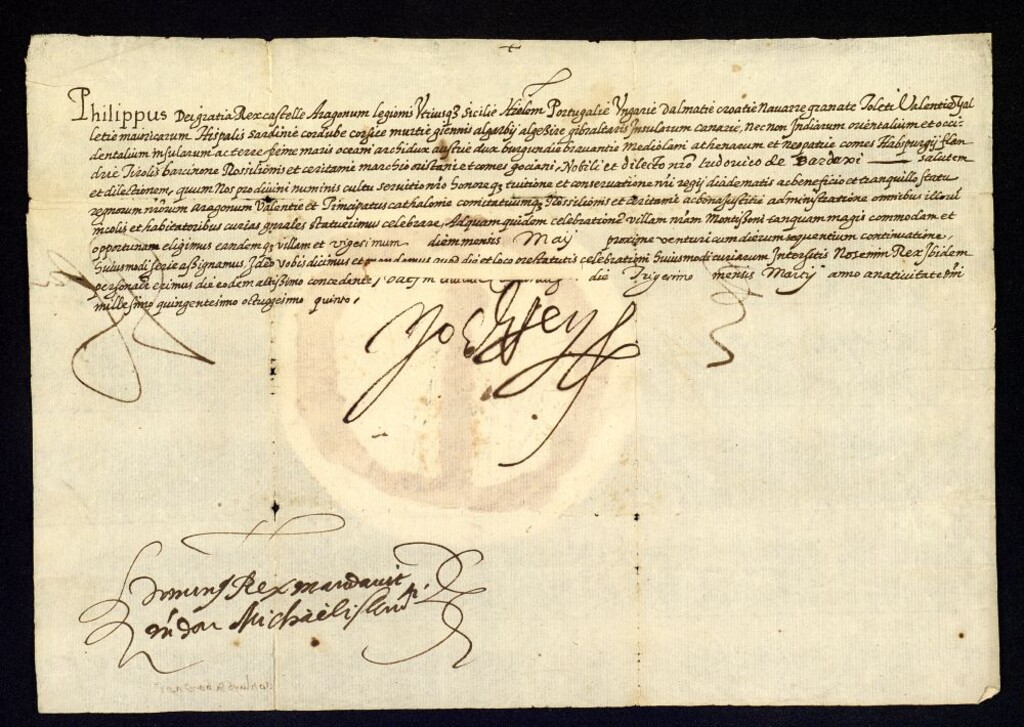 Philippus Dei gratia Rex castelle Aragonum legionis Utriusqꝫ Sicilie Hierlm̃ Portugalie Ungarie Dalmatie croatie Navarre granate Toleti Valentie gal
letie maioricarum Hispalis Sardinie cordube corsice murtie giennis algarbij algezire gibraltaris Insularum canarie, nec non Indiarum orientalium et occi
dentalium insularum ac terre firme maris oceani archidux austrie dux burgundie bravantie Mediolani athenarum et Neopatrie comes Habspurgij flan
drie Tirolis barcinone Rossilionis et ceritanie marchio oristani et comes gociani, Nobili et dilecto nr̃o ludovico de Bardaxi salutem
et dilectionem, quum Nos pro divini numinis cultu servitio nr̃o honoreqꝫ tuitione et conservatione nr̃i regij diadematis ac beneficio et tranquillo statu
regnorum nr̃orum aragonum Valentie et Principatus cathalonie comitatuumqꝫ Rossilionis et Ceritanie ac bona Justitie administratione omnibus illorũ
incolis et habitatoribus curias gñrales statuerimus celebrare, Ad quam quidem celebrationẽ villam nr̃am Montissoni tanquam magis commodam et
opportunam eligimus eandemqꝫ villam et vigesimum diem mensis Maij proxime venturi cum dierum sequentium continuatione,
huiusmodi serie assignamus, Ideo vobis dicimus et mandamus quod die et loco prestatutis celebrationi huiusmodi curiarum Intersitis Nos enim Rex Ibidem
personaꝉr erimus die eodem altissimo concedente, die Trigesimo mensis Martij anno a nativitate dñi
millesimo quingentesimo octuagesimo quinto,
Yo el Rey
Dominꝰ Rex mandavit
mihi don Michaeli